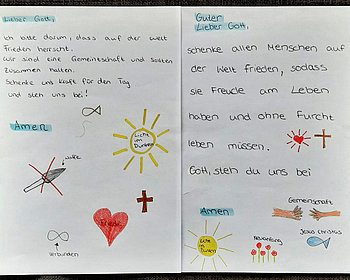 Lieber Gott,
ich bitte darum, dass auf der Welt
Frieden herrscht.
Wir sind eine Gemeinschaft und sollten
zusammen halten.
Schenke uns Kraft für den Tag
und steh uns bei!
Amen
Licht
im
Dunkeln
Waffe
Friede
Verbunden
Guter
Lieber Gott,
schenke allen Menschen auf
der Welt Frieden, sodass
sie Freude am Leben
haben und ohne Furcht
leben müssen.
Gott, steh du uns bei
Gemeinschaft
Amen
Licht
im
Dunkeln
Jesus Christus